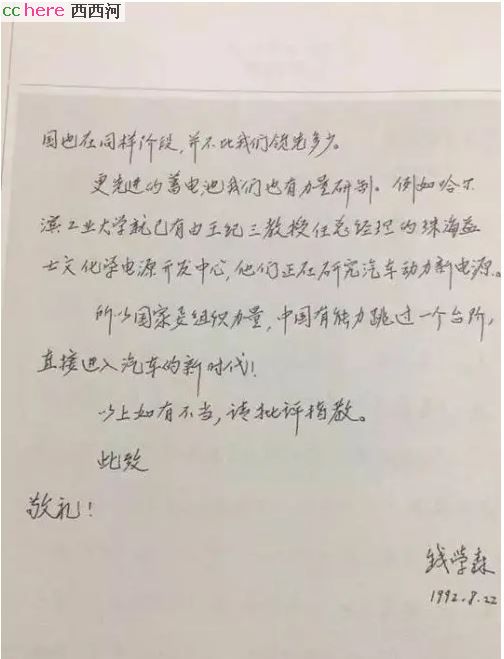 cchere 西西河
国也在同样阶段,并不比我们领先多少。
更先进的蓄电池我们也有力量研制。例如哈尔
滨工业大学就已有由王纪三教授任总经理的珠海益
士文化学电源开发中心,他们正在研究汽车动力新电源。
所以国家要组织力量,中国有能力跳过一个台阶,
直接进入汽车的新时代!
以上如有不当,请批评指教。
此致
敬礼!
钱学森
1992.8.22